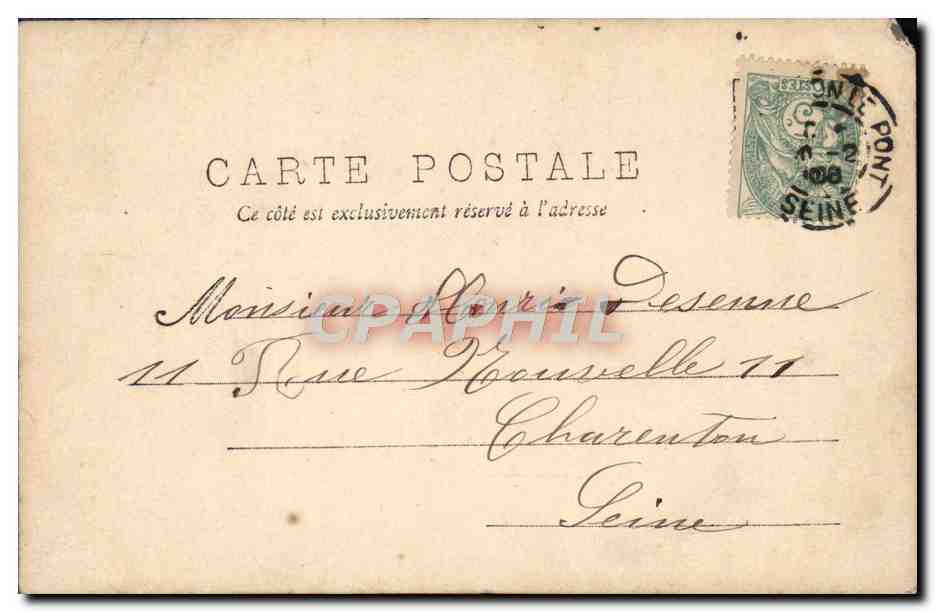 CARTE POSTALE
Ce côté est exclusivement réservé à l'adresse
ON LE PONT
-2
SEINE
Monsieur Desenne
11 Rue Nouvelle 11
Charenton
Seine
CPAPHIL